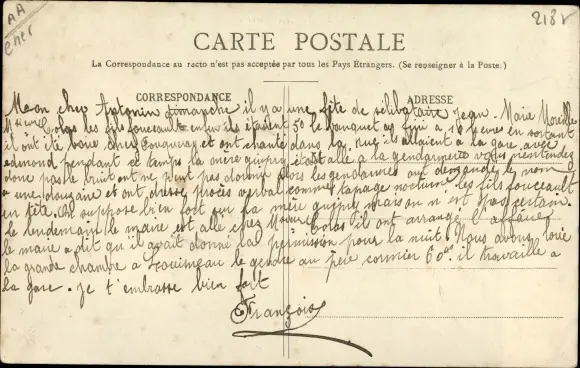 AA
Cher
2181
CARTE POSTALE
La Correspondance au recto n'est pas acceptée par tous les Pays Étrangers. (Se renseigner à la Poste.)
CORRESPONDANCE
ADRESSE
Mon cher Antonin dimanche il y a une fête de selibataire Jean. Marie
Colas les fils foucault enfin ils étaient 50 le banquet a fini a heures en sortant
il ont été boire chez et ont chanté dans la rue il allaient à la gare avec
edmond pendant ce temps la mère guipry était allé a la gendarmerie vous n'entendez
donc pas le bruit ont ne peut pas dormir alors les gendarmes ont demandé le nom
a une douzaine et ont dressé procès verbal comme tapage nocturne les fils foucault
en tête. On suppose bien fort sur la mère guipry mais on n'est pas certain.
Le lendemain le maire est allé chez Colas il ont arrangé l'affaire
le maire a dit qu'il avait donné la permission pour la nuit. Nous avons loué
la grande chambre a le gendre au père cormier 60. il travaille a
la gare. je t'embrasse bien fort
François